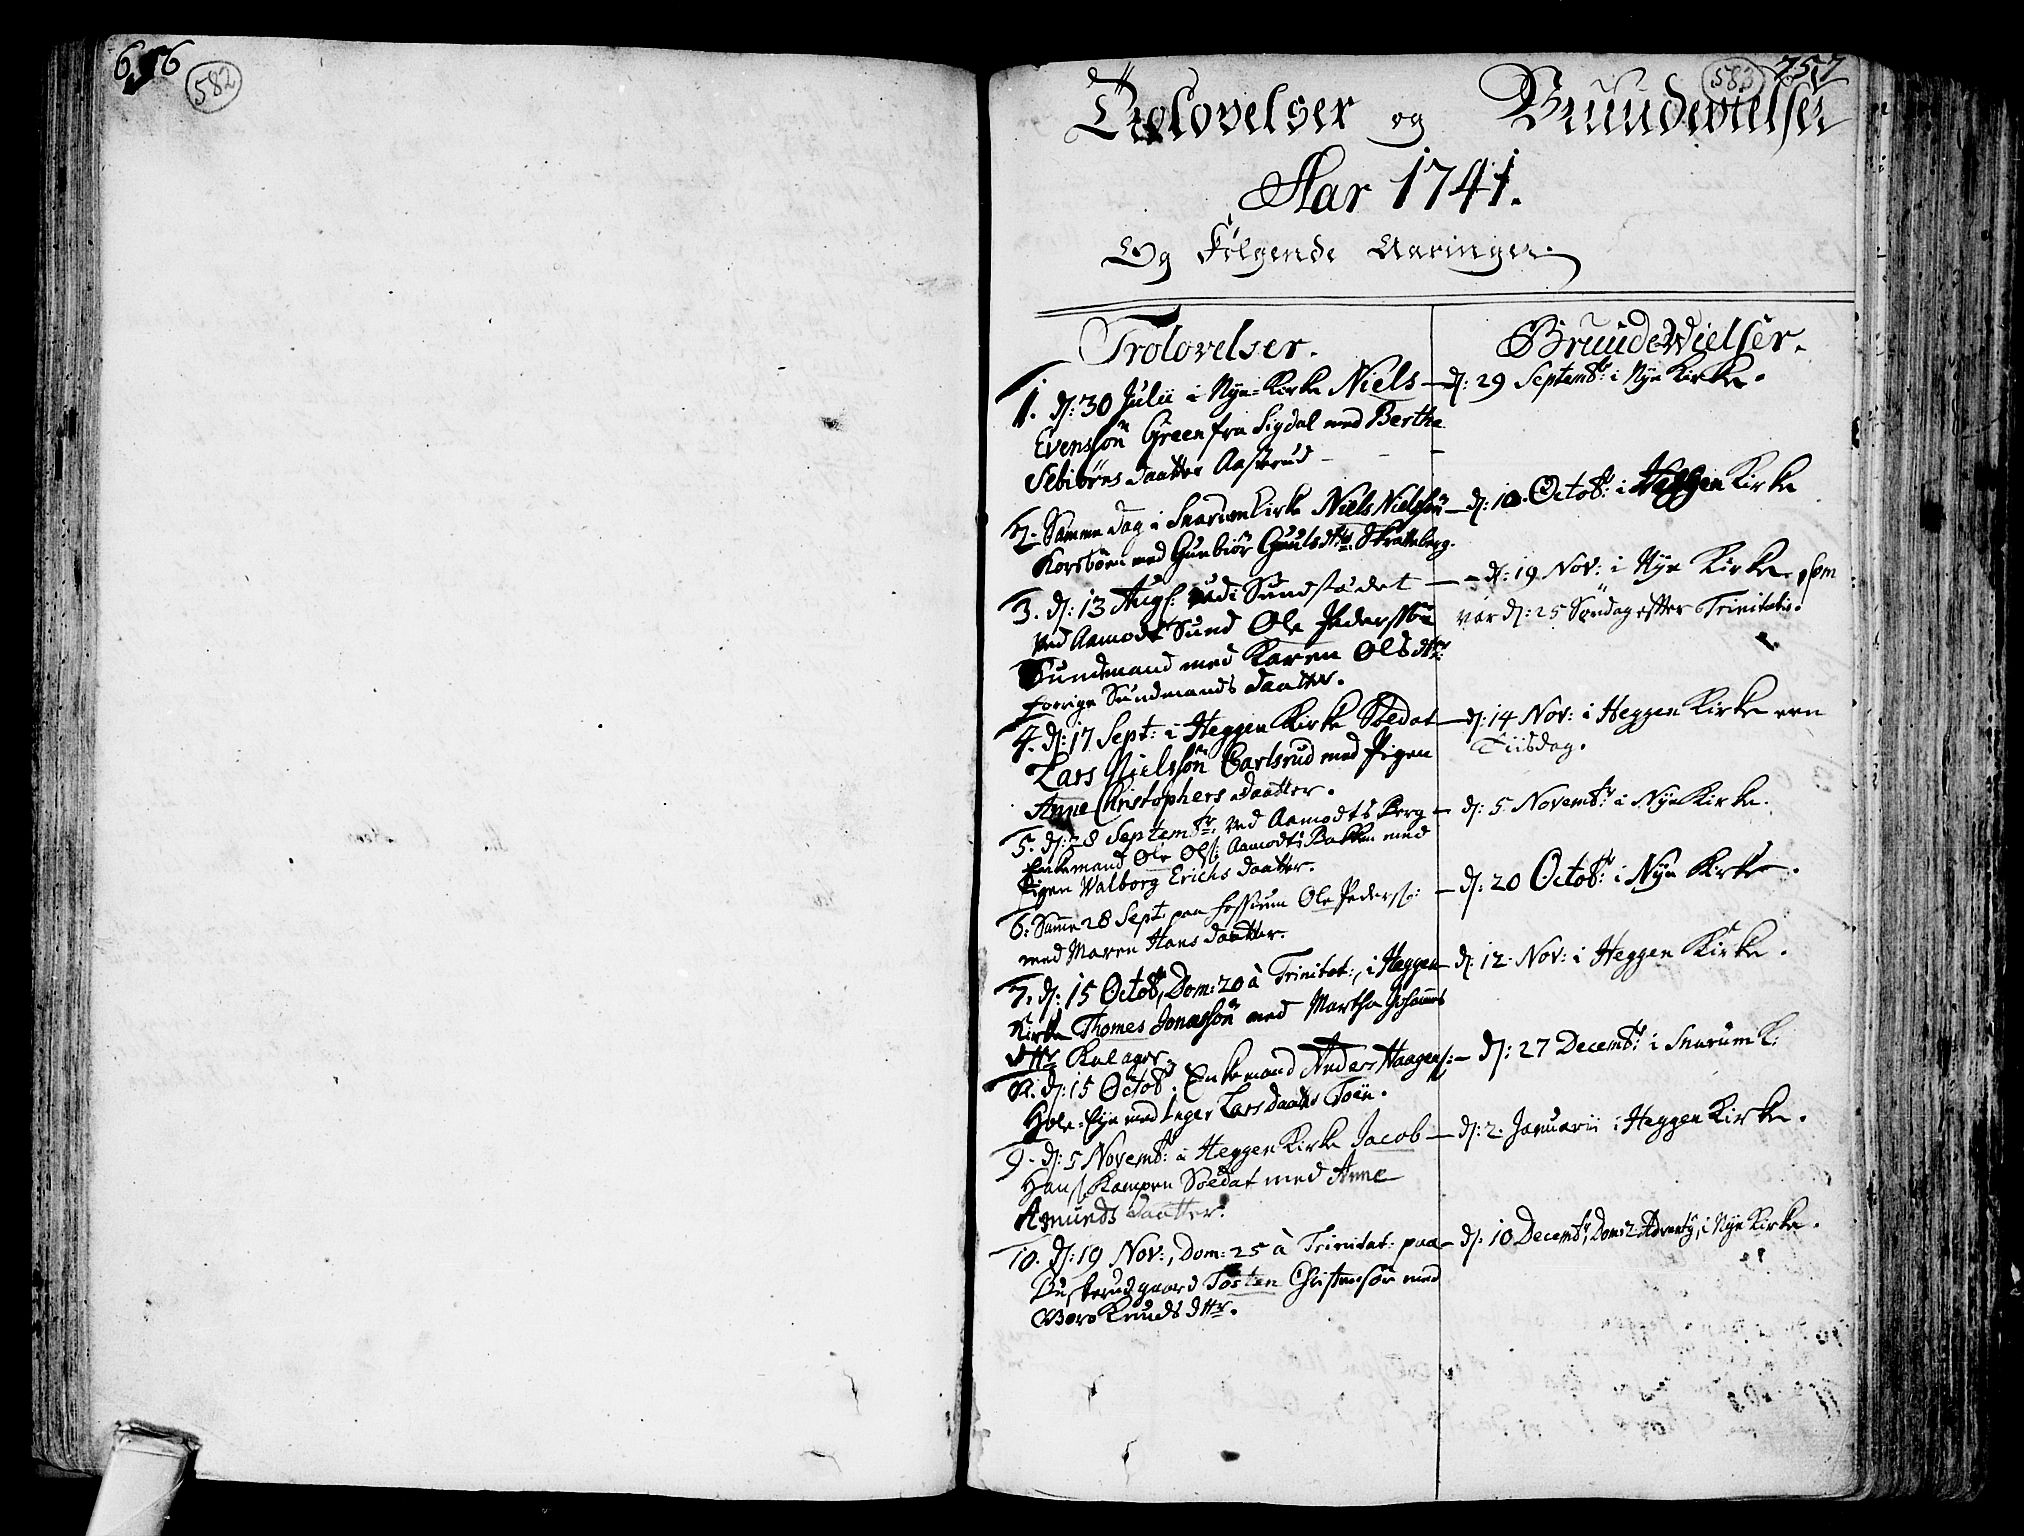 656
582
583
757
Trolovelser og Bruudevielser
Aar 1741.
Og Følgende Aaringer.
Trolovelser.
Bruudewielser.
1. d: 30 Julii i Nye-Kirke Niels
Evenssøn Green fra Sigdal med Berthe
Sebiørns daatter Aasterud
d: 29 Septembr: i Nye Kirke.
2. Samme dag i Snarum Kirke Niels Nielssøn
Korsbøen med Gunbiør Gulsdttr: Skratteberg.
d: 10. Octobr: i Heggen Kirke
3. d: 13 Aug: udi Sundstædet
ved Aamodt Sund Ole Pederssøn
Sundmand med Karen Olsdttr:
forrige Sundmands daatter.
d: 19 Nov: i Nye Kirke, som
var d: 25 Søndag efter Trinitatis.
4. d: 17 Sept: i Heggen Kirke Soldat
Lars Nielssøn Carlsrud med Pigen
Anne Christophers daatter.
d: 14 Nov: i Heggen Kirke een
Tiisdag.
5. d: 28 Septembr: ved Aamodts Berg
Enkemand Ole Ols: Aamodts Bakken med
Pigen Walborg Erichs daatter.
d: 5 Novembr: i Nye Kirke.
6. Samme 28 Sept: paa Fossum Ole Peders:
med Maren Hans daatter.
d: 20 Octobr: i Nye Kirke.
7. d: 15 Octobr, Dom: 20 à Trinitat:, i Heggen
Kirke Thomes Jonassøn med Martha Johannes
dttr Kalager.
d: 12. Nov: i Heggen Kirke.
8. d: 15 Octobr. Enkemand Anders Haagens:
Hole-Eye med Inger Lars daatter Toen.
d: 27 Decembr: i Snarum K:
9. d: 5 Novembr: i Heggen Kirke Jacob
Hans: Kampen Soldat med Anne
Asmunds daatter.
d: 2. Januarii i Heggen Kirke.
10. d: 19 Nov:, Dom: 25 à Trinitat: paa
Buskerud gaard Tosten Christensøn med
Boro Knuds dttr.
d: 10 Decembr, Dom: 2. Adventg, i Nye Kirke.